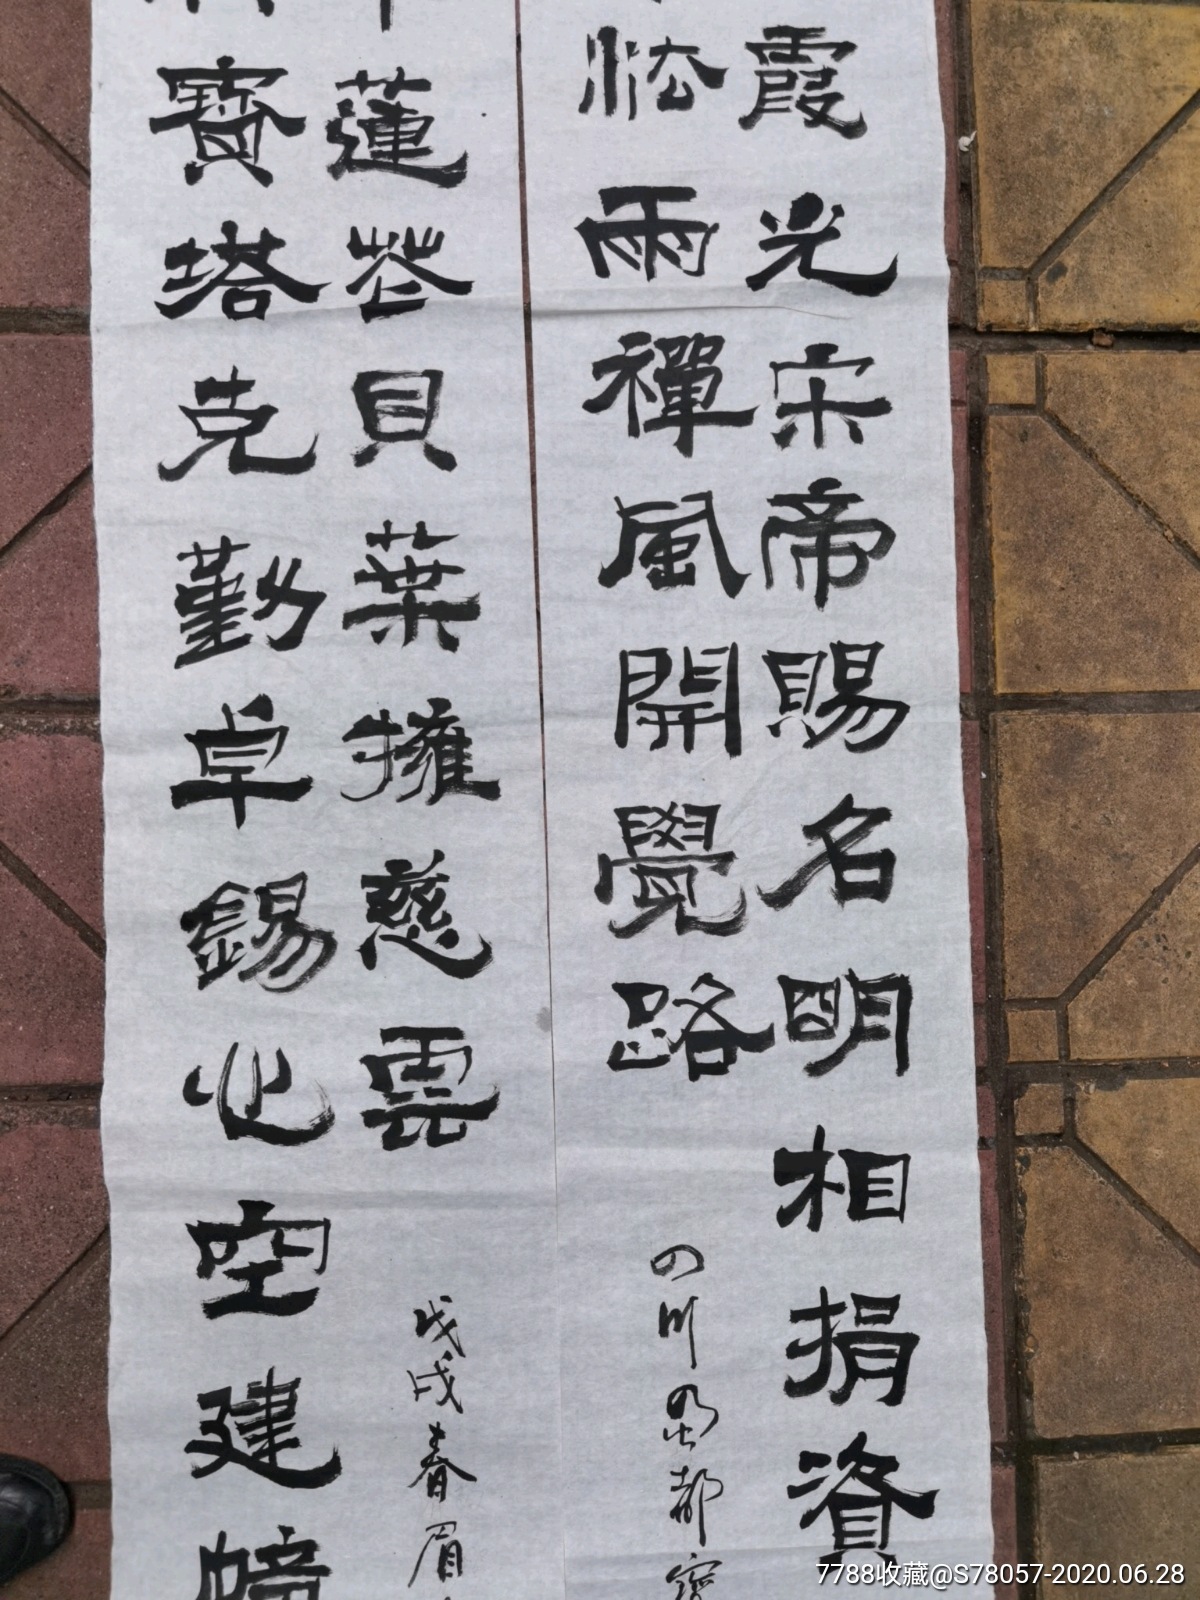 霞光宋帝賜名明相捐資
淞雨禪風開覺路
四川成都
蓮花貝葉擁慈雲
戊戌春眉
寶塔克勤卓錫心空建
7788收藏@S78057-2020.06.28